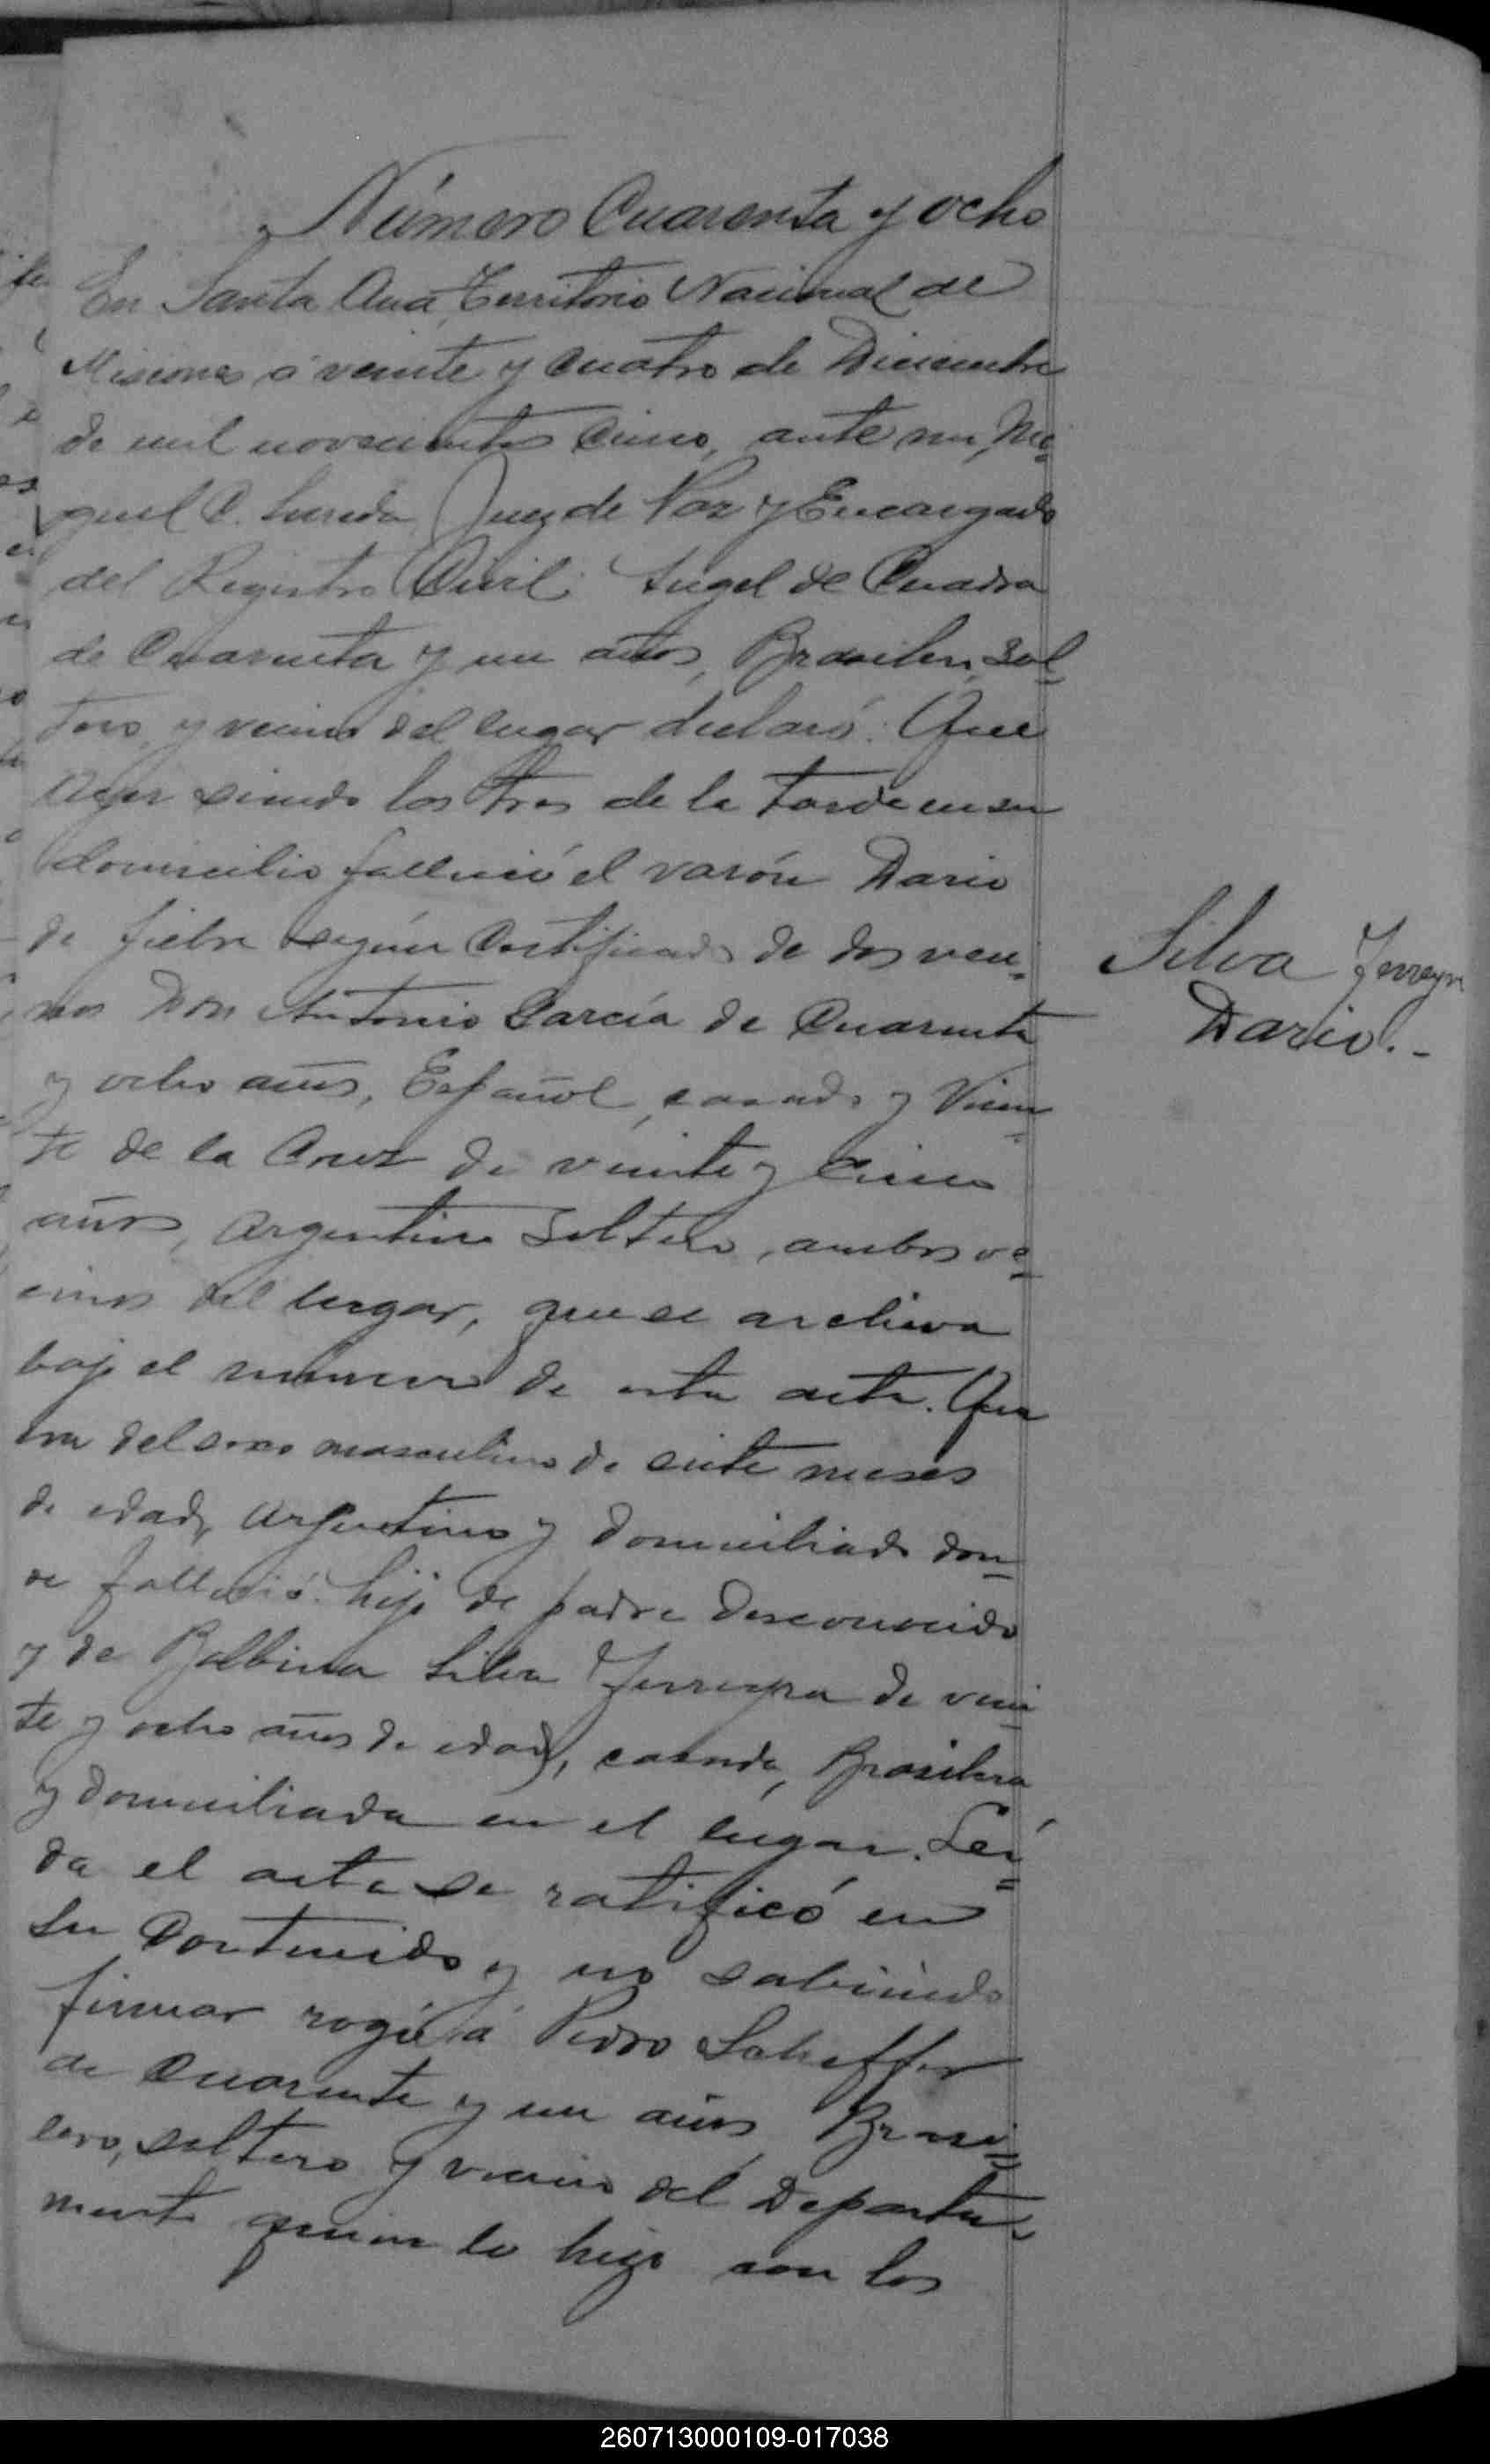 Número Cuarenta y ocho
En Santa Ana, Territorio Nacional de
Misiones á veinte y cuatro de Diciembre
de mil novecientos cinco, ante mi, Mi=
guel C. Juez de Paz y Encargado
del Registro Civil: Angel de Cuadra
de cuarenta y un años, Brasilero, sol=
tero y vecino del lugar declaró: Que
ayer siendo las tres de la tarde en su
domicilio falleció el varón Dario
de fiebre según certificado de dos veci=
nos Don Antonio García de cuarenta
y ocho años, Español, casado y Vicen=
te de la Cruz de veinte y cinco
años, Argentino soltero, ambos ve=
cinos del lugar, que se archiva
bajo el número de esta acta. Que
era del sexo masculino de siete meses
de edad, Argentino y domiciliado don=
de falleció: hijo de padre desconocido
y de Balbina Silva Ferreyra de vein=
te y ocho años de edad, casada, Brasilera
y domiciliada en el lugar. Leí=
da el acta se ratificó en
su contenido y no sabiendo
firmar rogó á Pedro Scheffer
de cuarenta y un años, Brasi=
lero, soltero y vecino del Departa=
mento quien lo hizo con los
Silva Ferreyra
Dario.-
260713000109-017038